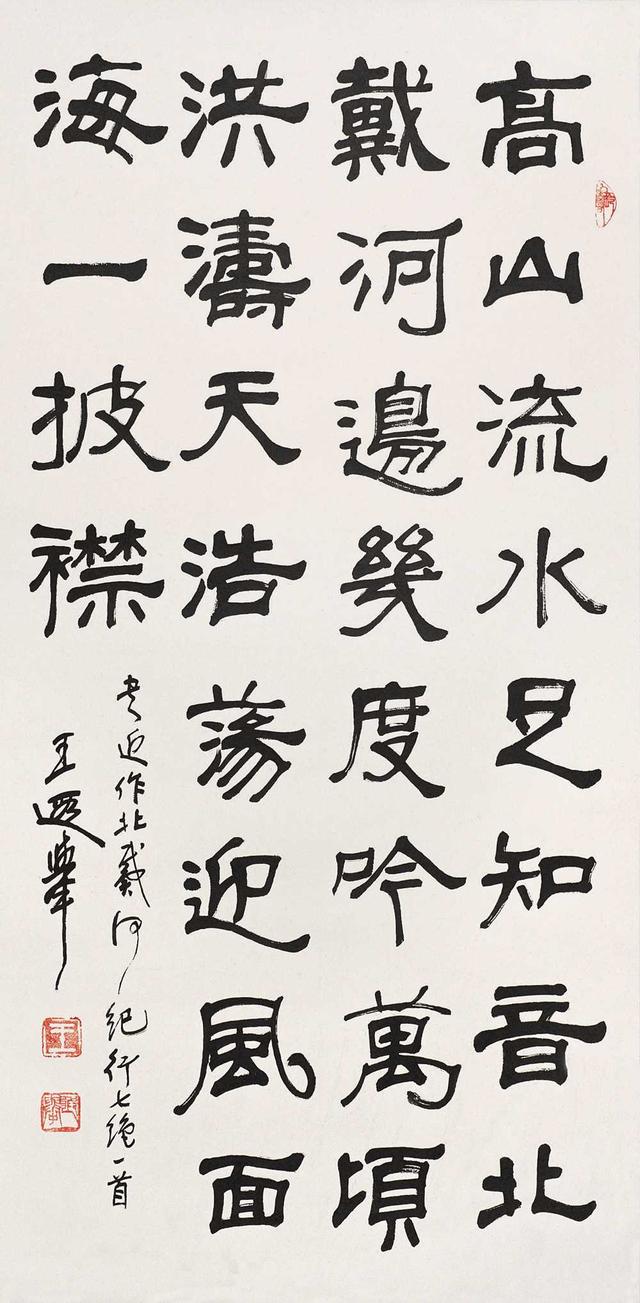 高山流水足知音北
戴河邊幾度吟萬頃
洪濤天浩蕩迎風面
海一披襟
書近作北戴河紀行七絕一首
王遐舉
王